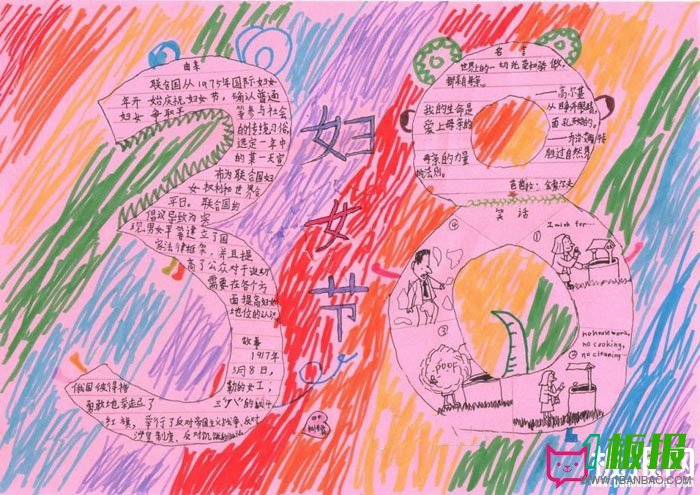 由来
联合国从1975年国际妇女
年开始庆祝妇女节，确认普通
妇女争取平
等参与社会
的传统习俗，
选定一年中
的某一天宣
布为联合国妇
女权利和世界和
平日。联合国的
倡议导致为实
现男女平等建立了国
家法律框架，并且提
高了公众对于迫切
需要在各个方
面提高妇女
地位的认识。
故事
1917年
3月8日，
俄国彼得格
勒的女工，
勇敢地举起了
红旗，举行了反对帝国主义战争，反对
沙皇制度，反对饥饿的
妇
女
节
名言
世界上的一切光荣和骄傲，
都来自母亲。
——高尔基
我的生命是
从睁开眼睛，
爱上母亲的
面孔开始的。
——乔治·艾略特
母亲的力量
胜过自然界
的法则。
芭芭拉·金索尔夫
笑话
I wish for...
①
no housework,
no cooking,
② no cleaning...
③
poof
④
板报网
www.1BANBAO.COM